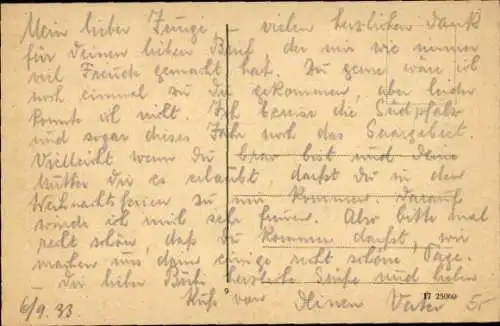 Mein lieber Junge – vielen herzlichen Dank
für Deinen lieben Brief der mir wie immer
viel Freude gemacht hat. Zu gerne wäre ich
noch einmal zu Dir gekommen, aber leider
konnte ich nicht. Ich bereise die Südpfalz
und sogar dieses Jahr noch das Saargebiet.
Vielleicht wenn Du brav bist und Deine
Mutter Dir es erlaubt, darfst Du in den
Weihnachtsferien zu mir kommen. Darauf
würde ich mich sehr freuen. Also bitte mal
recht schön, daß Du kommen darfst, wir
machen uns dann einige recht schöne Tage.
Du lieber herzliche Grüße und lieben
Kuß von Deinem Vater
6/9. 33
9
17 25060
5.-